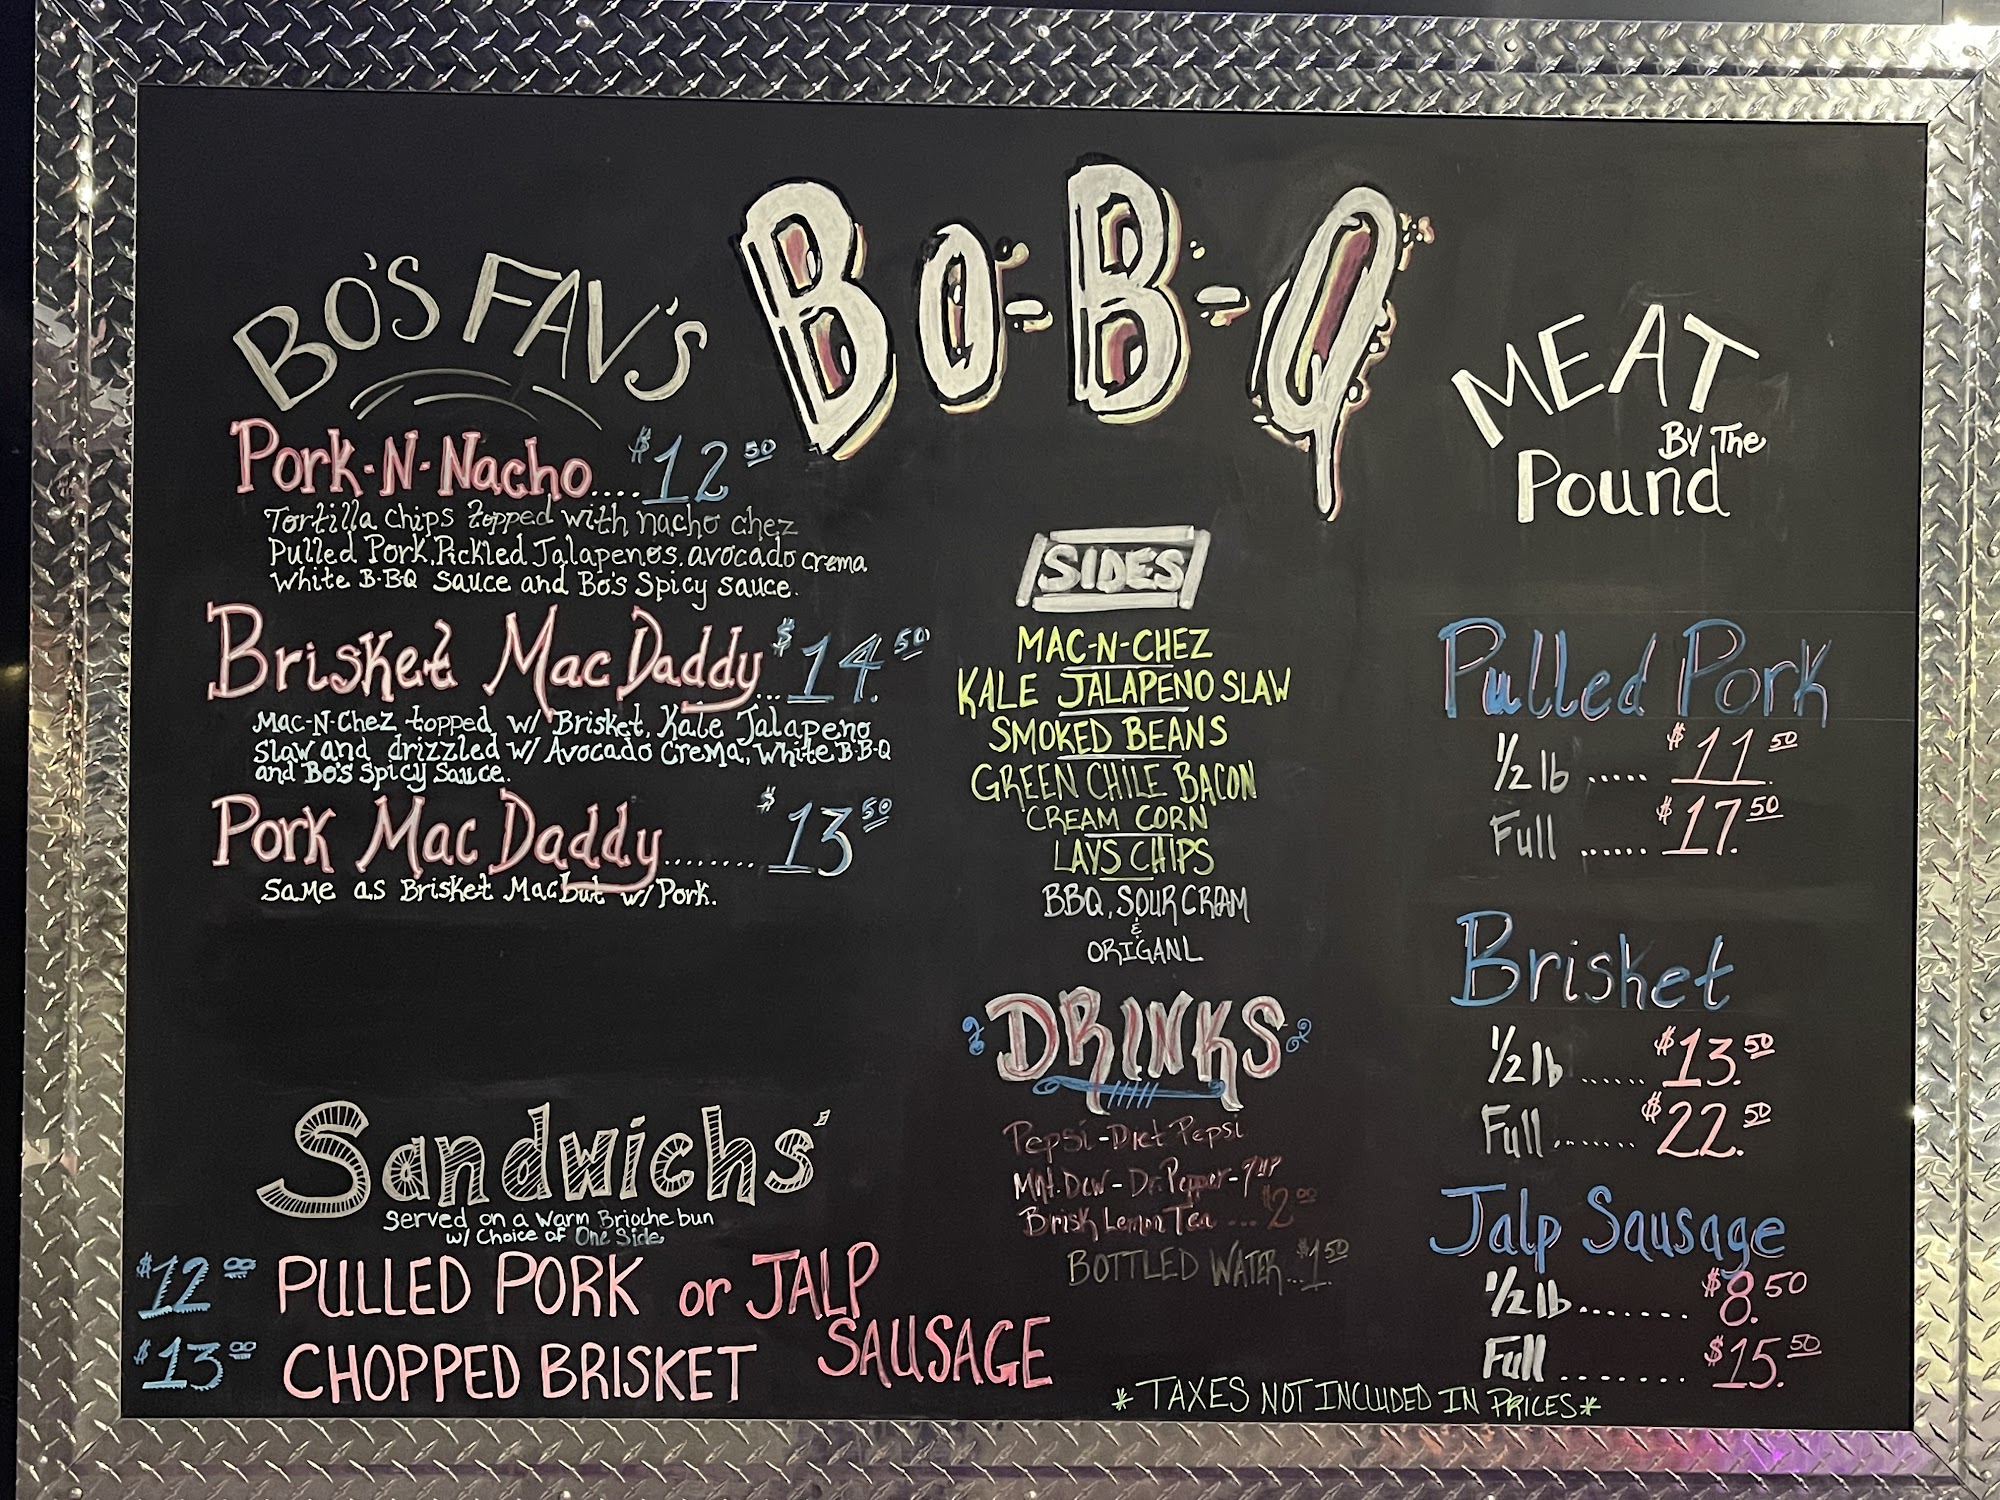 Bo-B-Q
BO'S FAV'S
Pork-N-Nacho.... $12.50
Tortilla Chips topped with nacho chez
Pulled Pork, Pickled Jalapenos, avocado crema
White B-B-Q Sauce and Bo's Spicy sauce.
Brisket Mac Daddy... $14.50
Mac-N-Chez topped w/ Brisket, Kale Jalapeno
Slaw and drizzled w/ Avocado Crema, White B-B-Q
and Bo's Spicy Sauce.
Pork Mac Daddy........ $13.50
Same as Brisket Mac but w/ Pork.
Sandwichs'
Served on a Warm Brioche bun
w/ Choice of One Side
$12.00 PULLED PORK or JALP
SAUSAGE
$13.00 CHOPPED BRISKET
SIDES
MAC-N-CHEZ
KALE JALAPENO SLAW
SMOKED BEANS
GREEN CHILE BACON
CREAM CORN
LAYS CHIPS
BBQ, SOUR CREAM
&
ORIGANL
DRINKS
Pepsi - Diet Pepsi
Mnt. Dew - Dr. Pepper - 7UP
Brisk Lemon Tea ... $2.00
BOTTLED WATER... $1.50
MEAT
By The
Pound
Pulled Pork
1/2 lb ..... $11.50
Full ...... $17.50
Brisket
1/2 lb ...... $13.50
Full ....... $22.50
Jalp Sausage
1/2 lb....... $8.50
Full ........ $15.50
*TAXES NOT INCLUDED IN PRICES*